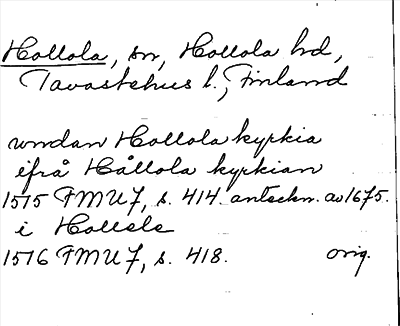 Hollola, sn, Hollola hd,
Tavastehus l., Finland
wndan Hollola kyrkia
ifrå Hållola kyrkian
1515 FMU 7, s. 414. anteckn. av 1675.
i Hollole
1516 FMU 7, s. 418. orig.